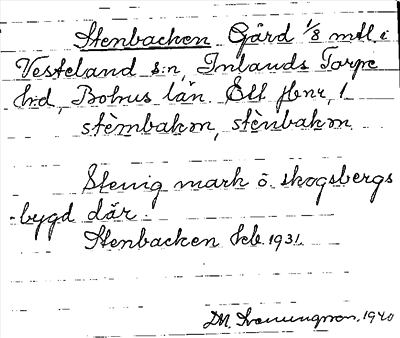 Stenbacken Gård 1/8 mtl i
Vesteland s:n, Inlands Torpe
hd, Bohus län. Ett jbnr, 1
stèmbakɷn, stènbakɷn
Stenig mark o. skogsbergs
-bygd där.
Stenbacken Geb. 1931.
DM. 1940